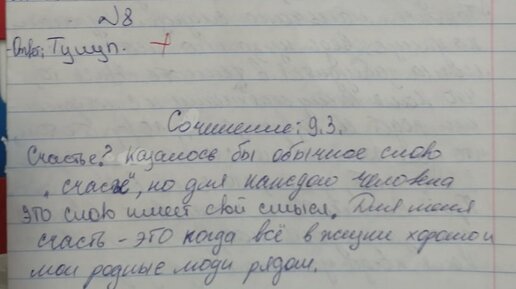 №8
Ответ: Тулуп. +
Сочинение: 9.3.
Счастье? казалось бы обычное слово
„счасте", но для каждого человека
это слово имеет свой смысл. Для меня
счасть - это когда всё в жизни хорошо и
мои родные люди рядом.